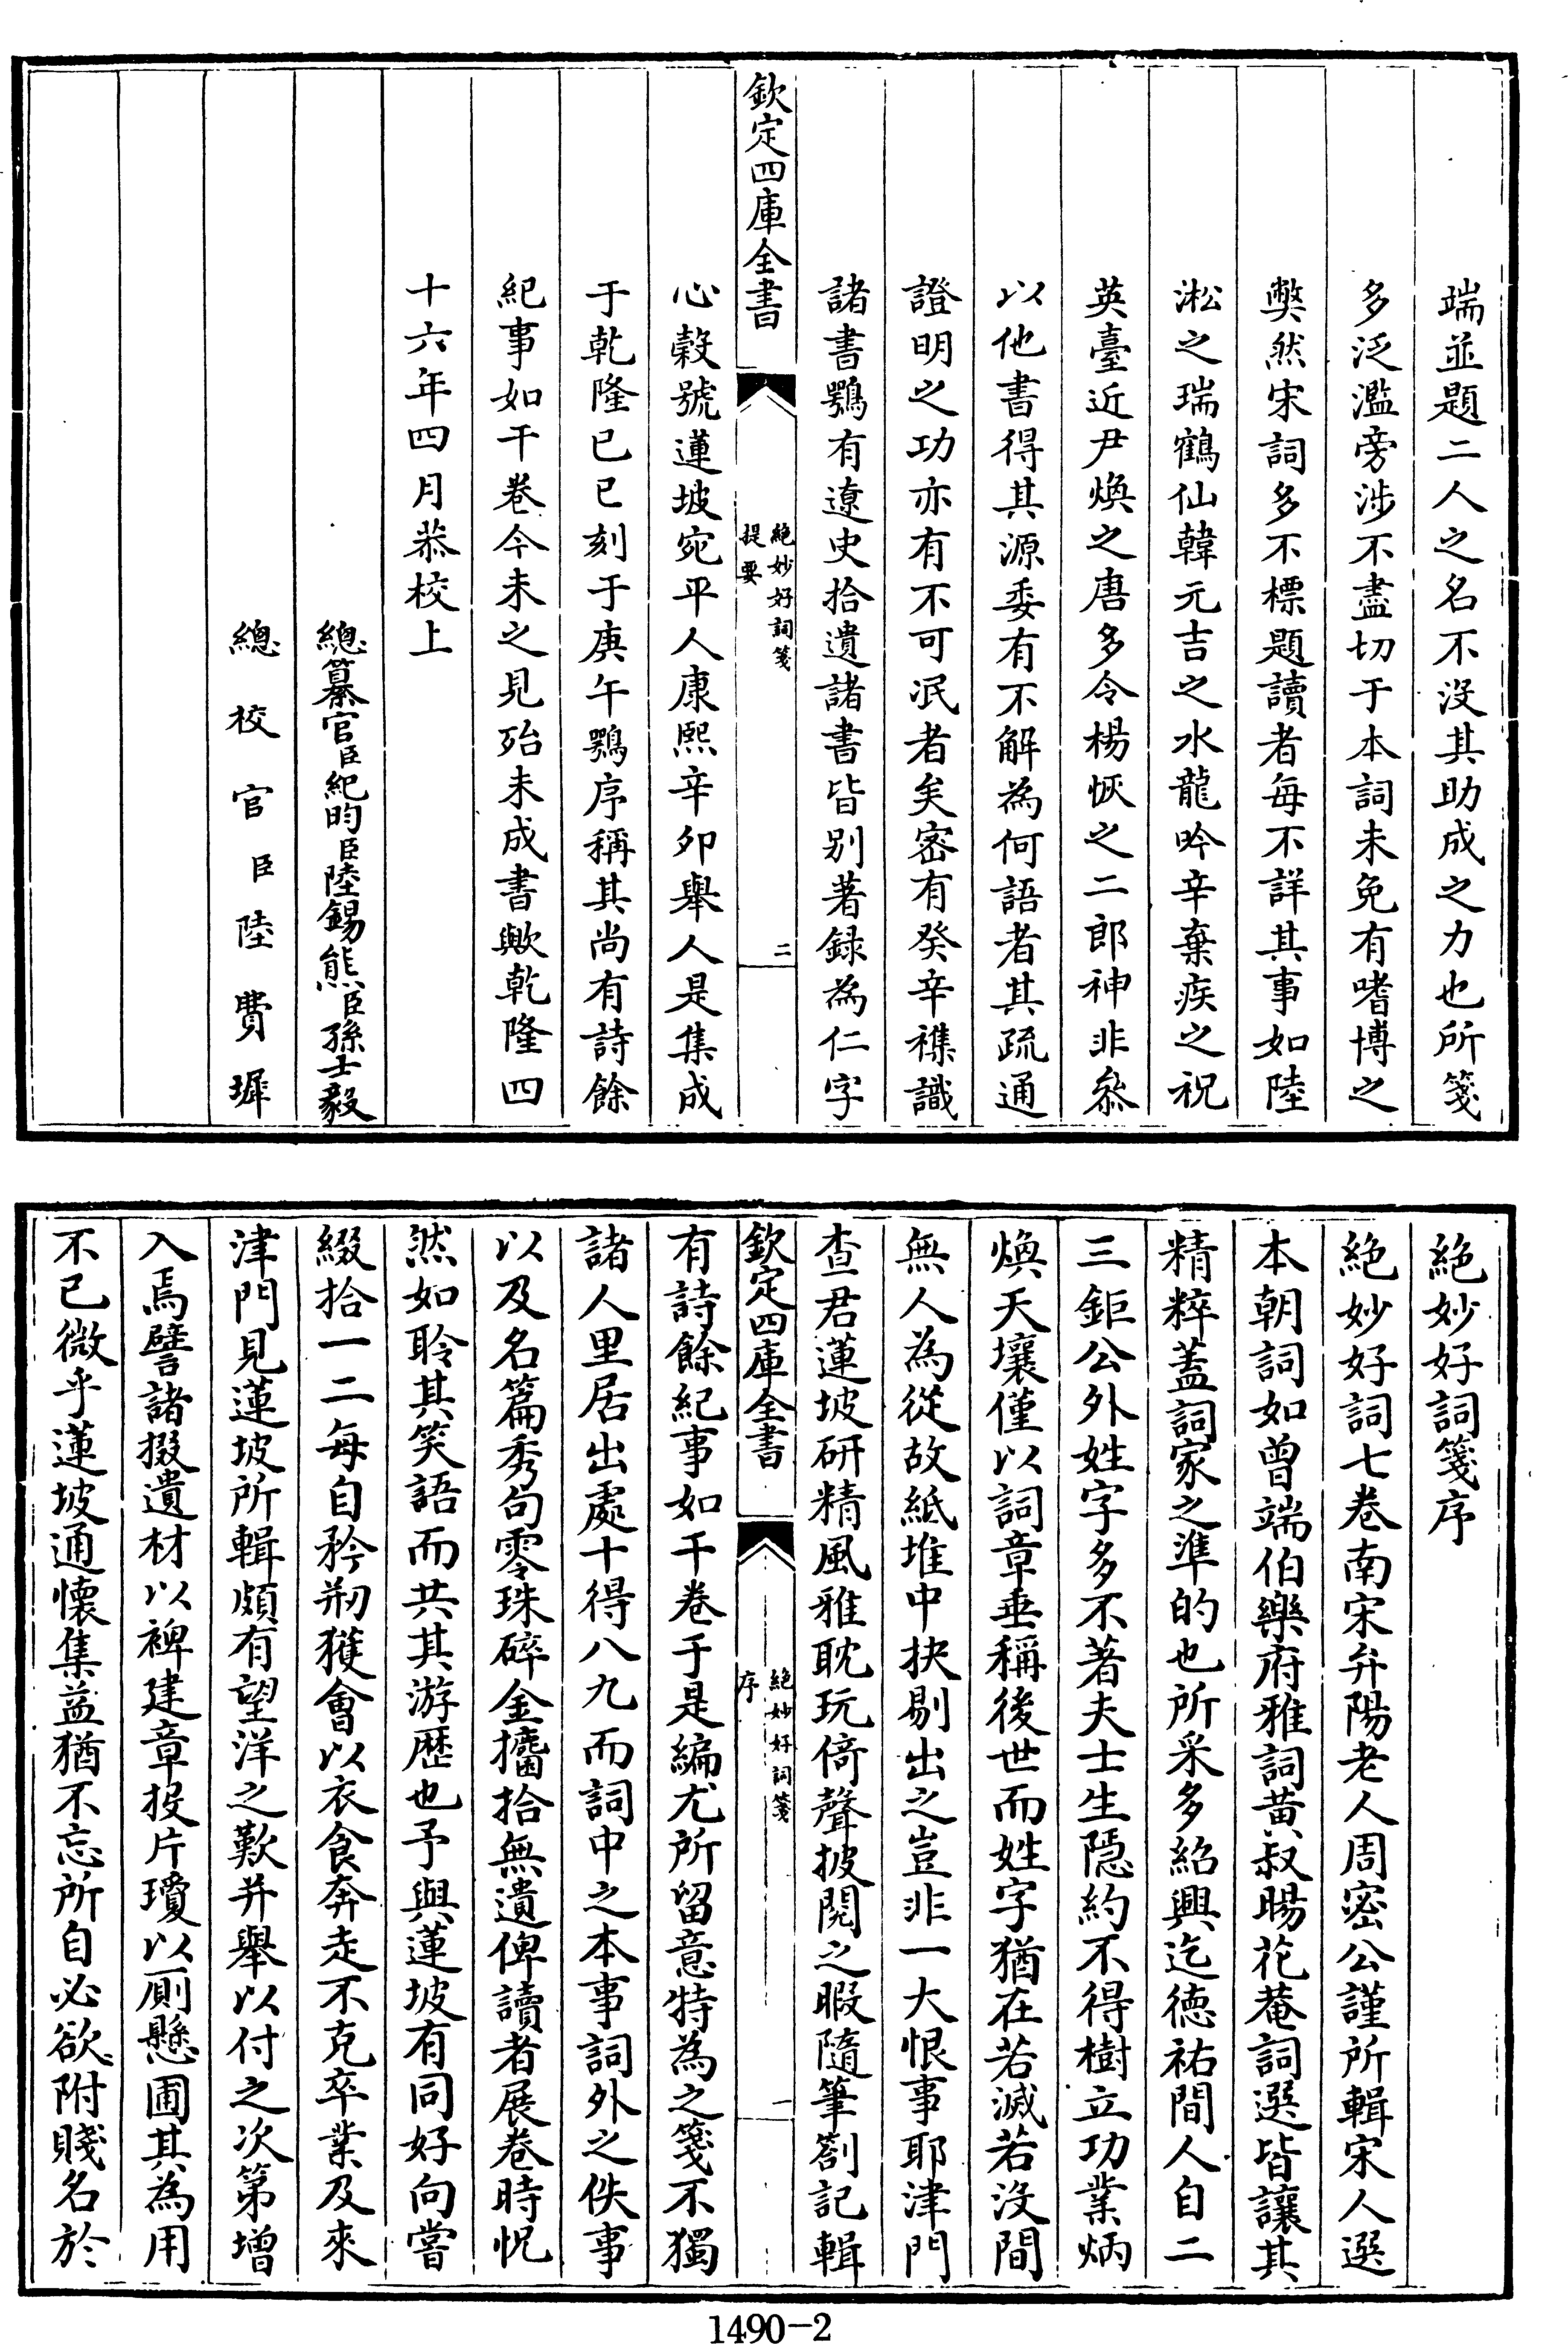 端並題二人之名不没其助成之力也所箋
多泛濫旁涉不盡切于本詞未免有嗜博之
弊然宋詞多不標題讀者每不詳其事如陸
淞之瑞鶴仙韓元吉之水龍吟辛棄疾之祝
英臺近尹煥之唐多令楊恢之二郎神非叅
以他書得其源委有不解為何語者其疏通
證明之功亦有不可泯者矣密有癸辛襍識
諸書鶚有遼史拾遺諸書皆別著録為仁字
欽定四庫全書
絶妙好詞箋
提要
二
心穀號蓮坡宛平人康熙辛卯舉人是集成
于乾隆已已刻于庚午鶚序稱其尚有詩餘
紀事如干卷今未之見殆未成書歟乾隆四
十六年四月恭校上
總纂官臣紀昀臣陸錫熊臣孫士毅
總校官臣陸費墀
絶妙好詞箋序
絶妙好詞七卷南宋弁陽老人周密公謹所輯宋人選
本朝詞如曾端伯樂府雅詞黄叔暘花菴詞選皆讓其
精粹葢詞家之準的也所采多紹興迄德祐間人自二
三鉅公外姓字多不著夫士生隱約不得樹立功業炳
煥天壤僅以詞章垂稱後世而姓字猶在若滅若没間
無人為從故紙堆中抉剔出之豈非一大恨事耶津門
查君蓮坡研精風雅耽玩倚聲披閲之暇隨筆劄記輯
欽定四庫全書
絶妙好詞箋
序
一
有詩餘紀事如干卷于是編尤所留意特為之箋不獨
諸人里居出處十得八九而詞中之本事詞外之佚事
以及名篇秀句零珠碎金攟拾無遺俾讀者展卷時怳
然如聆其笑語而共其游歴也予與蓮坡有同好向嘗
綴拾一二每自矜剏獲會以衣食奔走不克卒業及來
津門見蓮坡所輯頗有望洋之歎并舉以付之次第增
入焉譬諸掇遺材以裨建章投片瓊以厠懸圃其為用
不已微乎蓮坡通懷集益猶不忘所自必欲附賤名於
1490-2